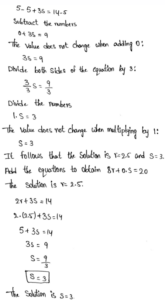 5-5+3s = 14-5
Subtract the numbers
0+3s = 9
The value does not change when adding 0:
3s = 9
Divide both sides of the equation by 3:
3/3 s = 9/3
Divide the numbers
1·s = 3
The value does not change when multiplying by 1:
s = 3
It follows that the solution is r=2.5 and s=3.
Add the equations to obtain 8r+0·s=20
The solution is r=2.5.
2r+3s=14
2·(2.5)+3s=14
5+3s=14
3s = 9
s = 9/3
s = 3
The solution is s=3